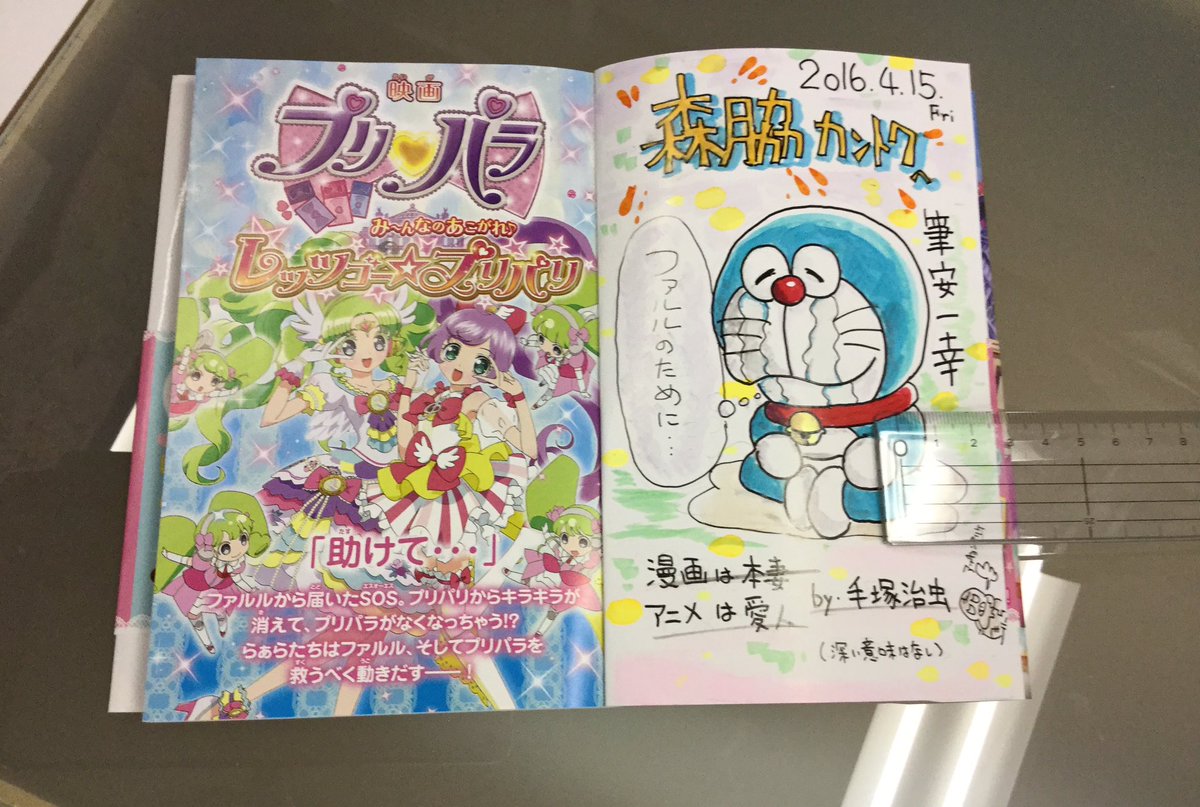 映画
プリパラ
み〜んなのあこがれ♪
レッツゴー☆プリパリ
「助けて・・・」
ファルルから届いたSOS。プリパリからキラキラが
消えて、プリパラがなくなっちゃう!?
らぁらたちはファルル、そしてプリパラを
救うべく動きだす——!
2016.4.15.
Fri
森脇カントクへ
筆安一幸
ファルルのために…
漫画は本妻
アニメは愛人
by.手塚治虫
(深い意味はない)
0 1 2 3 4 5 6 7 8